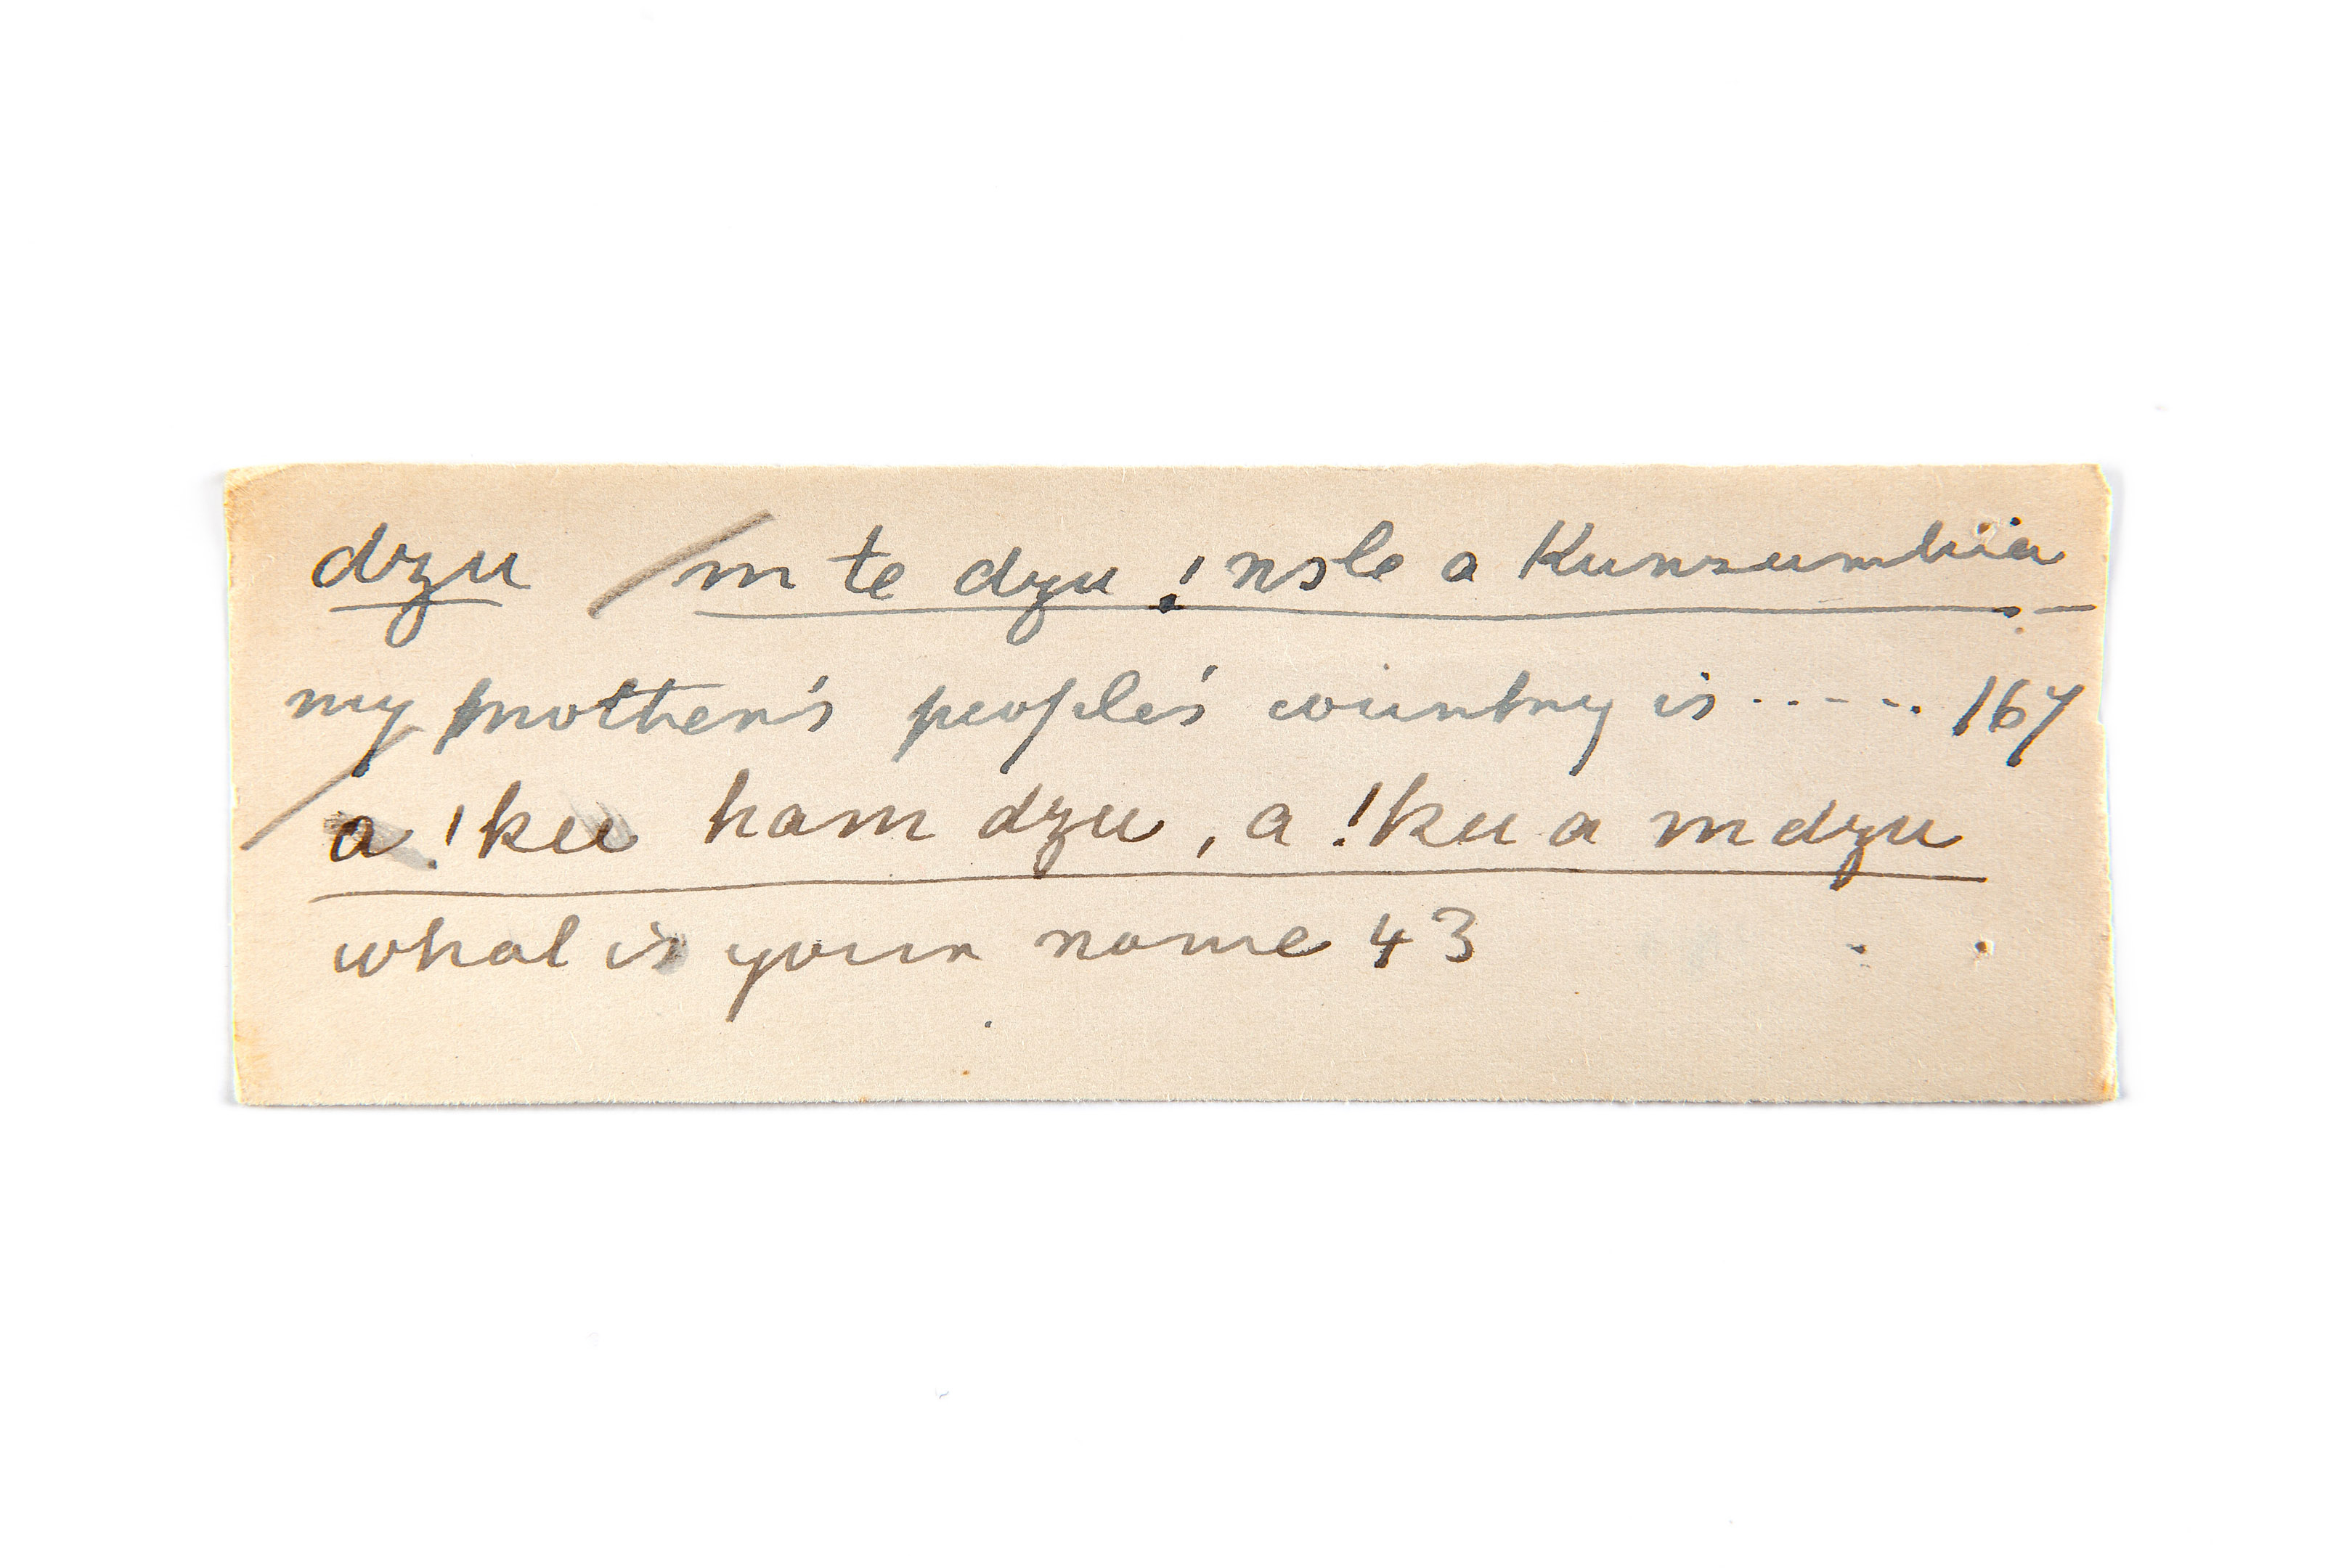 dzu / m te dzu !nsle a Kunzumbiia
my mother's people's country is ..... 167
/ a !ku ham dzu, a !ku a m dzu
what is your name 43